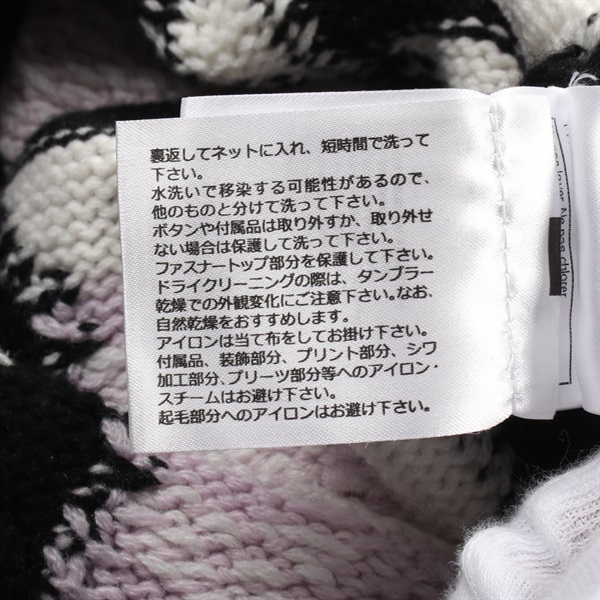 裏返してネットに入れ、短時間で洗って
下さい。
水洗いで移染する可能性があるので、
他のものと分けて洗って下さい。
ボタンや付属品は取り外すか、取り外せ
ない場合は保護して洗って下さい。
ファスナートップ部分を保護して下さい。
ドライクリーニングの際は、タンブラー
乾燥での外観変化にご注意下さい。なお、
自然乾燥をおすすめします。
アイロンは当て布をしてお掛け下さい。
付属品、装飾部分、プリント部分、シワ
加工部分、プリーツ部分等へのアイロン・
スチームはお避け下さい。
起毛部分へのアイロンはお避け下さい。
Ne pas chlorer